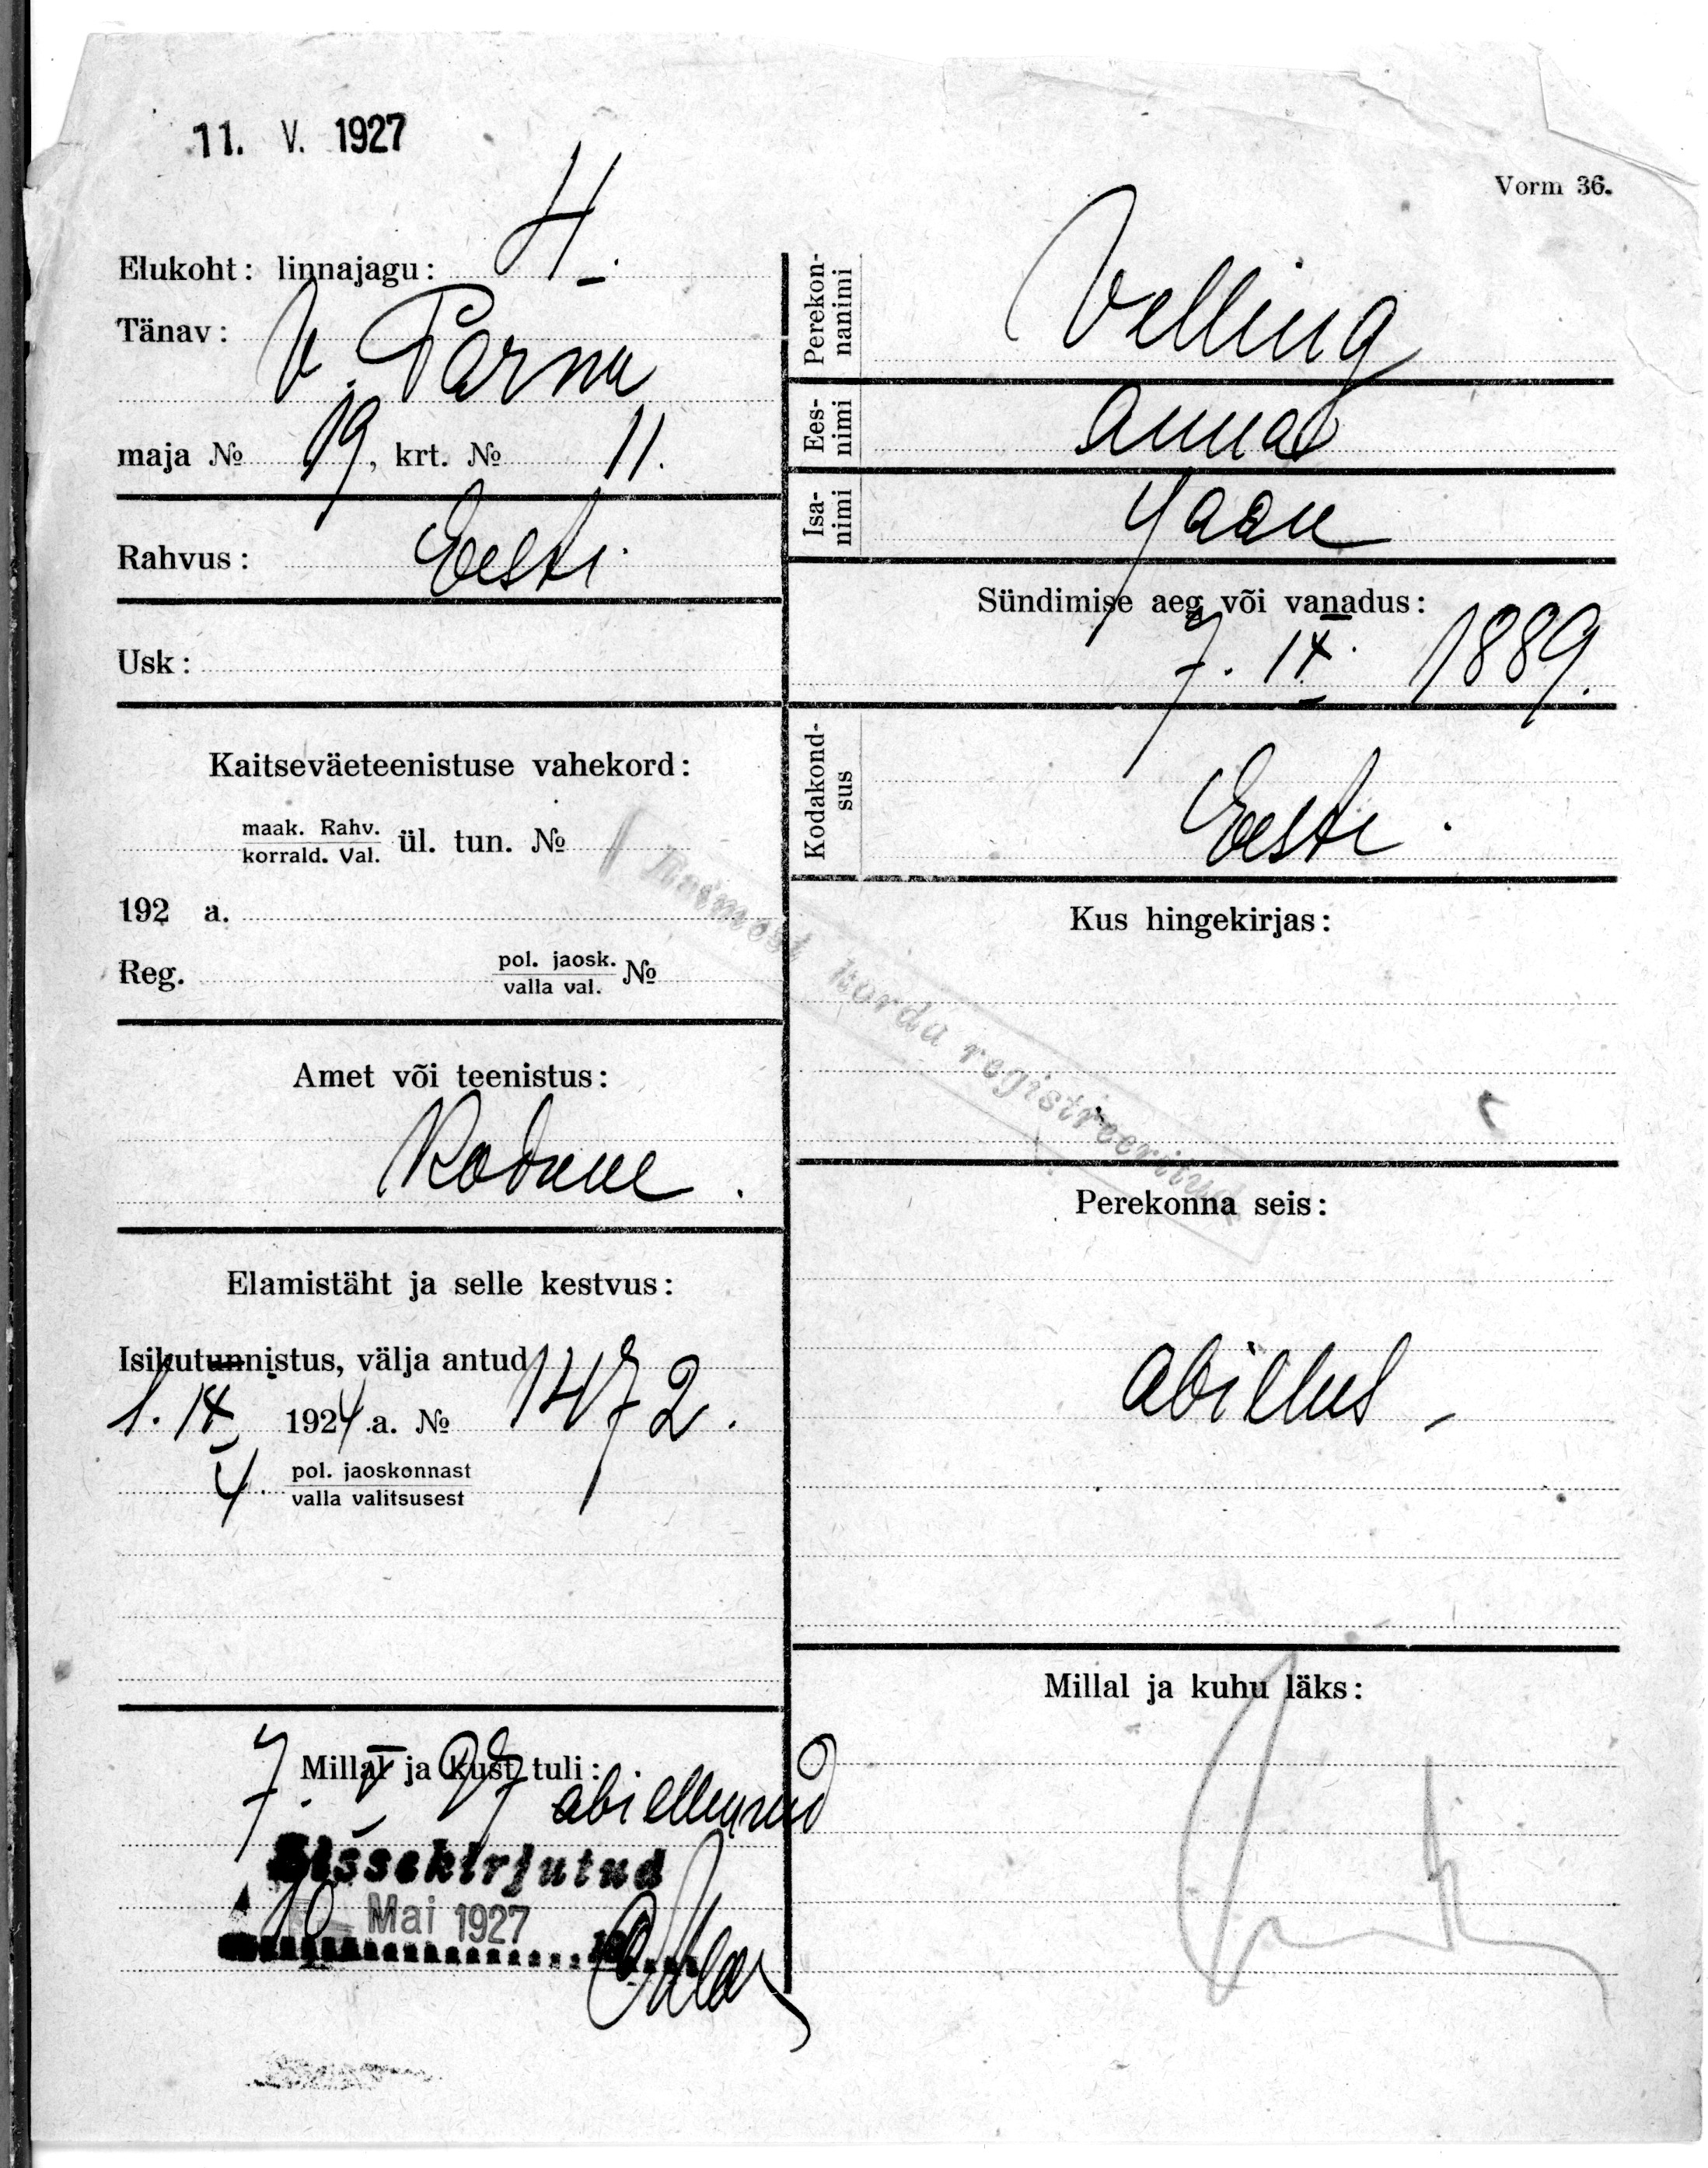 11. V. 1927
Vorm 36.
Elukoht: linnajagu: H.
Tänav: V. Pärnu
maja № 19, krt. № 11.
Rahvus: Eesti.
Usk:
Kaitseväeteenistuse vahekord:
maak. Rahv.
korrald. Val. ül. tun. №
192 a.
Reg. pol. jaosk.
valla val. №
Amet või teenistus:
Kodune.
Elamistäht ja selle kestvus:
Isikutunnistus, välja antud
1. IX 1924 a. № 1472.
4. pol. jaoskonnast
valla valitsusest
Millal ja kust tuli:
7. V 27 abiellunud
Sissekirjutud
10 Mai 1927
Perekon-
nanimi
Velling
Ees-
nimi
Anna
Isa-
nimi
Jaan
Sündimise aeg või vanadus:
7. IX. 1889.
Kodakond-
sus
Eesti.
Kus hingekirjas:
korda registreeritud
Perekonna seis:
abielus
Millal ja kuhu läks: